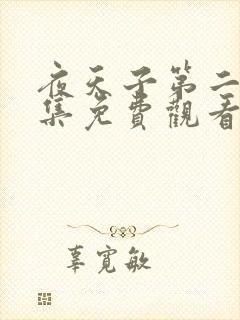 夜天子第二
集免費觀看
辜寬敏